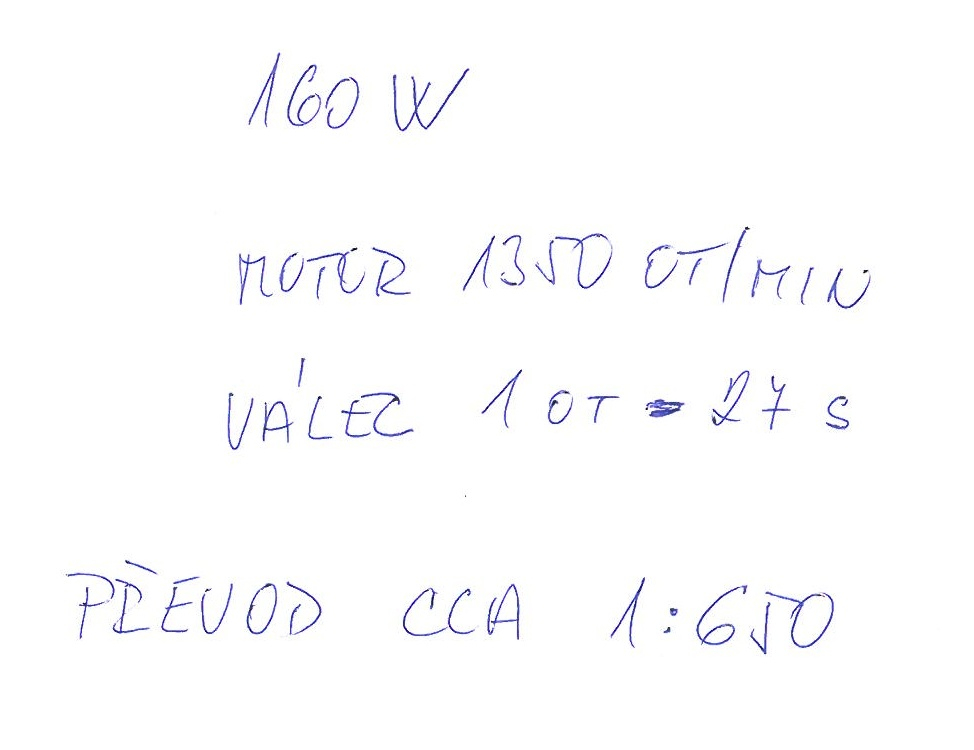 160 W
MOTOR 1350 OT/MIN
VÁLEC 1 OT - 27 s
PŘEVOD CCA 1:650